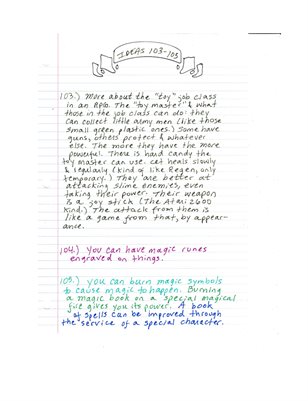 IDEAS 103-105
103.) More about the "toy" job class
in an RPG. The "toy master" & what
those in the job class can do: they
can collect little army men (like those
small green plastic ones.) Some have
guns, others protect & whatever
else. The more they have the more
powerful. There is hard candy the
toy master can use. Get heals slowly
& regularly (kind of like Regen, only
temporary.) They are better at
attacking slime enemies, even
taking their power. Their weapon
is a joy stick (The Atari 2600
kind.) The attack from them is
like a game from that, by appear-
ance.
104.) You can have magic runes
engraved on things.
105.) You can burn magic symbols
to cause magic to happen. Burning
a magic book on a special magical
fire gives you its power. A book
of spells can be improved through
the service of a special character.